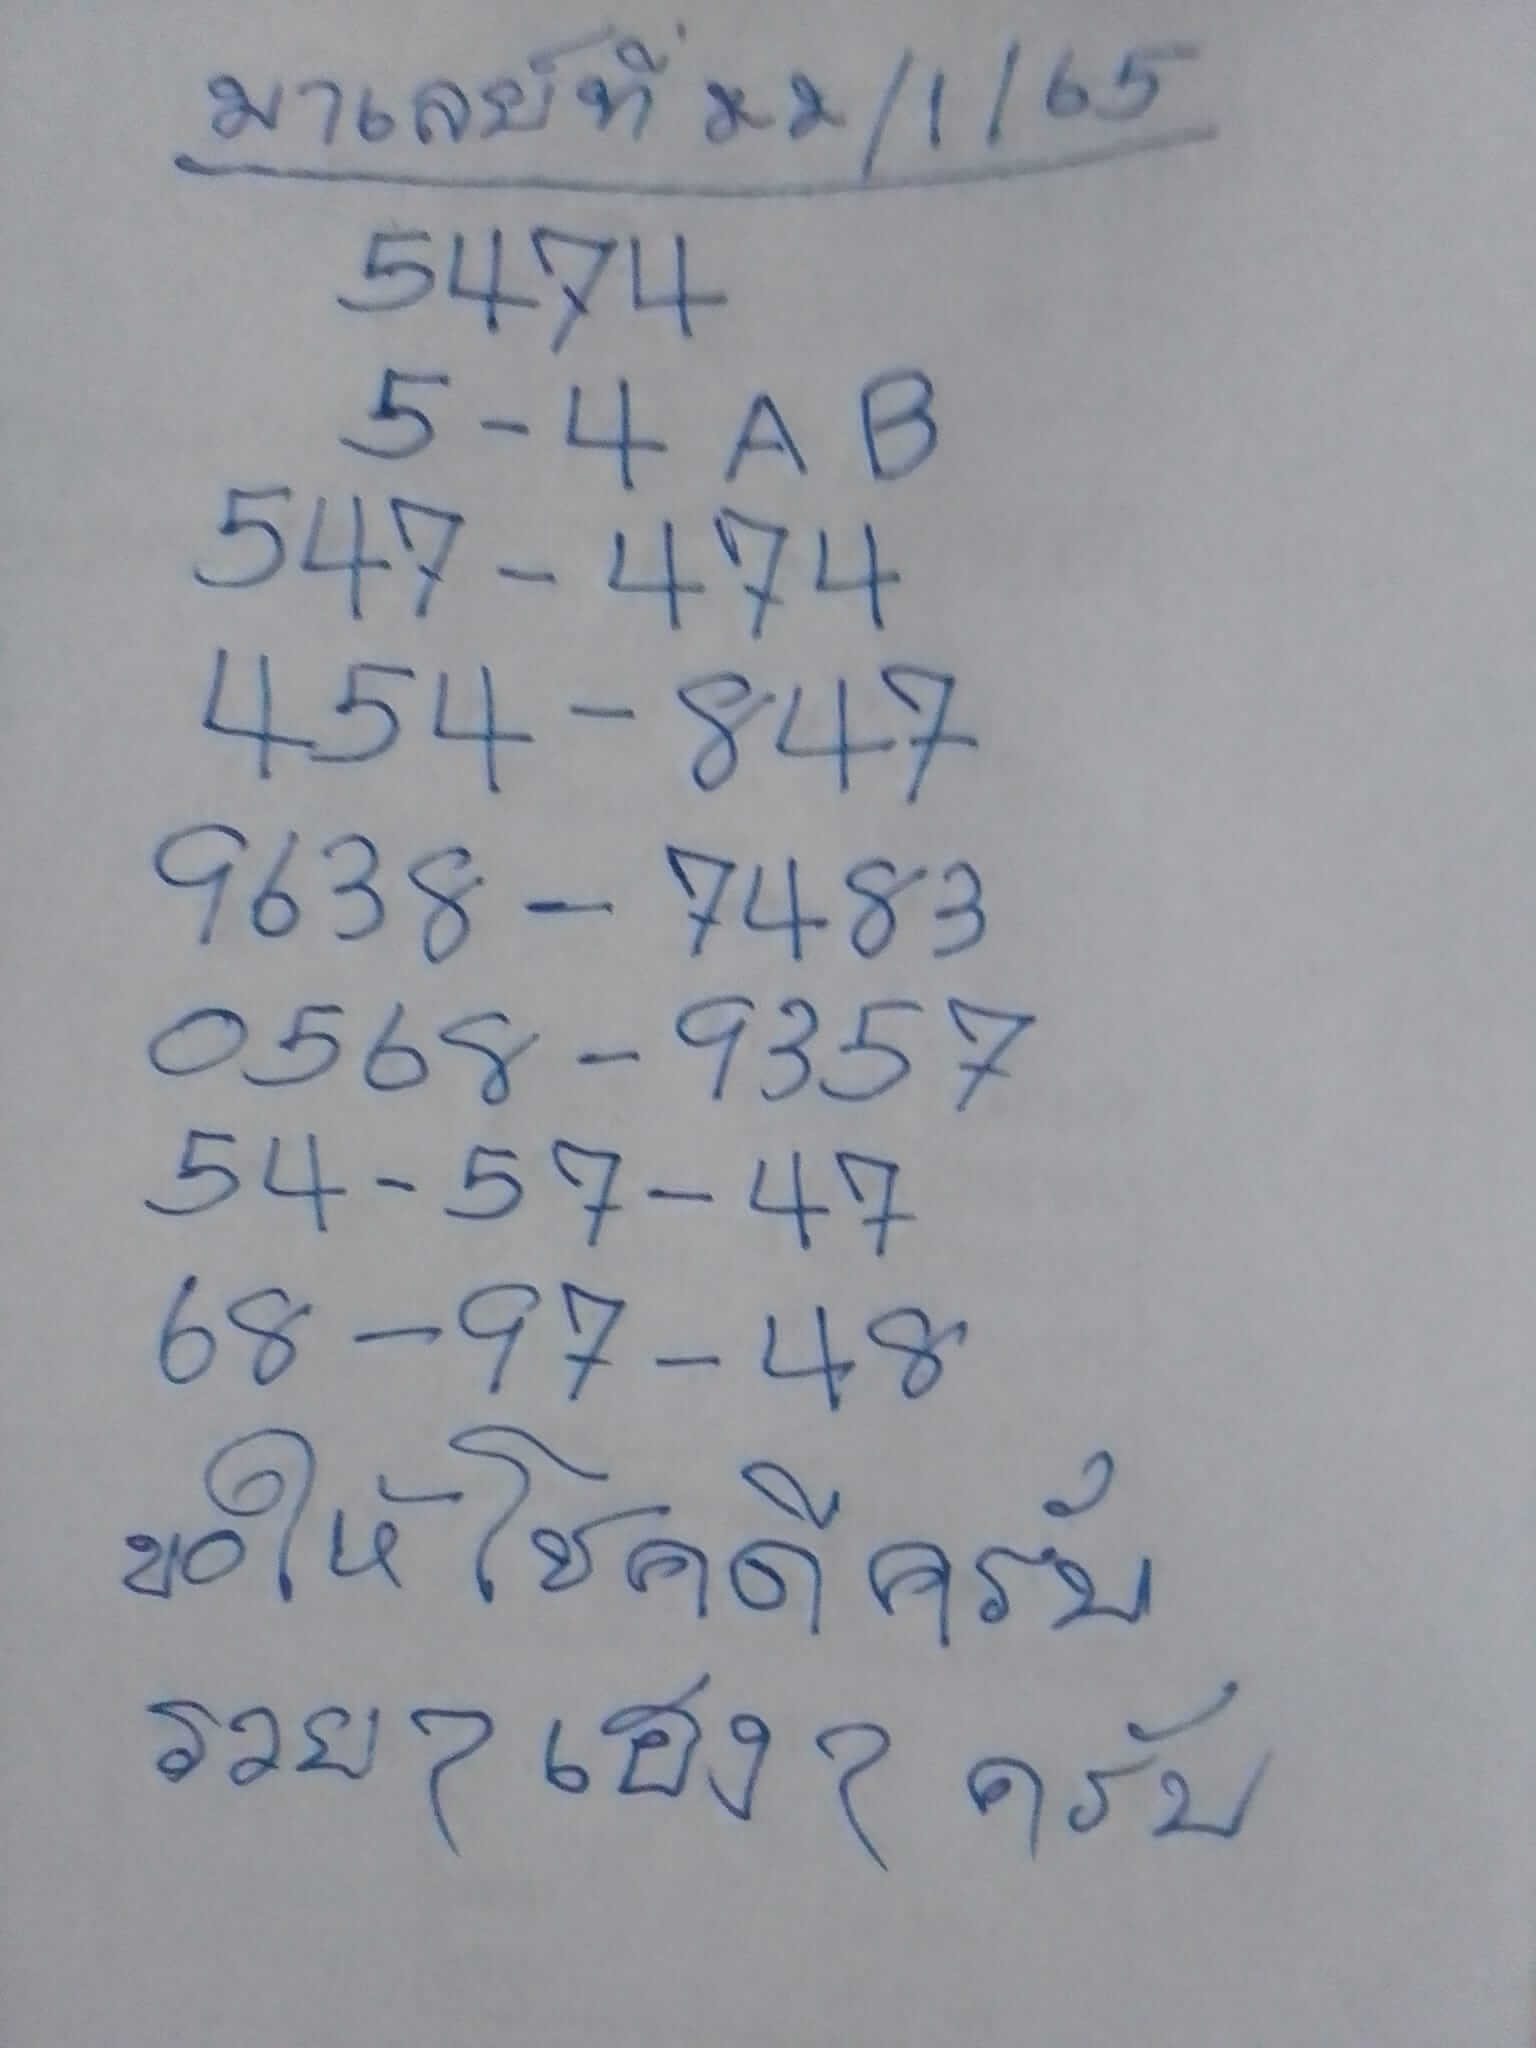 มาเลย์ที่ 22/1/65
5474
5-4 A B
547-474
454-847
9638-7483
0568-9357
54-57-47
68-97-48
ขอให้โชคดีครับ
รวยๆเฮงๆ ครับ